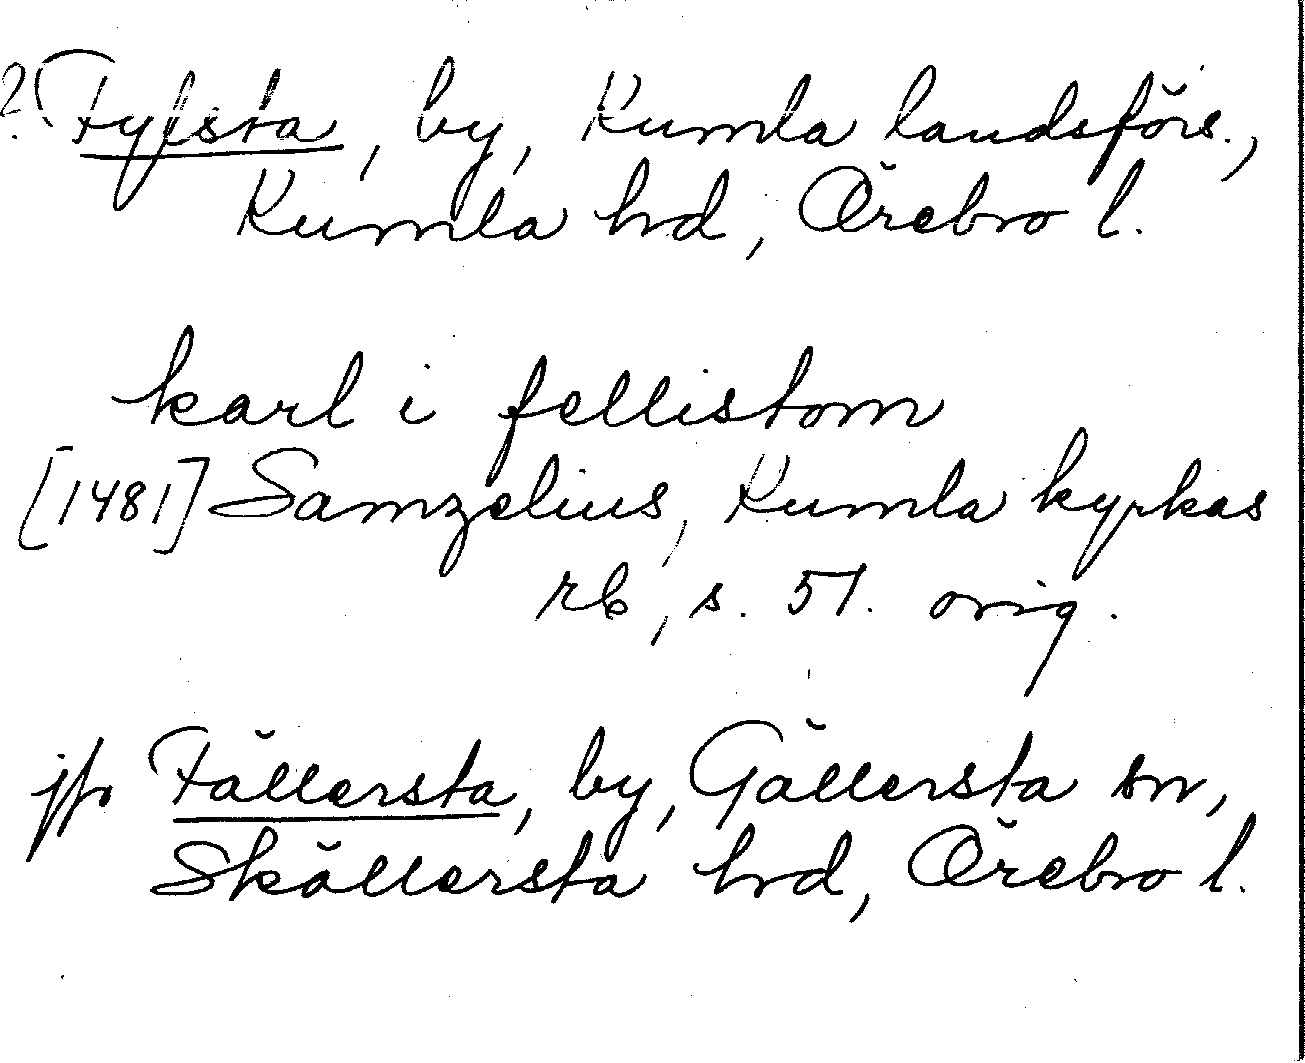 ? Fylsta, by, Kumla landsförs.,
Kumla hd, Örebro l.
karl i fellistom
[1481] Samzelius, Kumla kyrkas
rb, s. 51. orig.
jfr Fällersta, by, Gällersta sn,
Sköllersta hd, Örebro l.